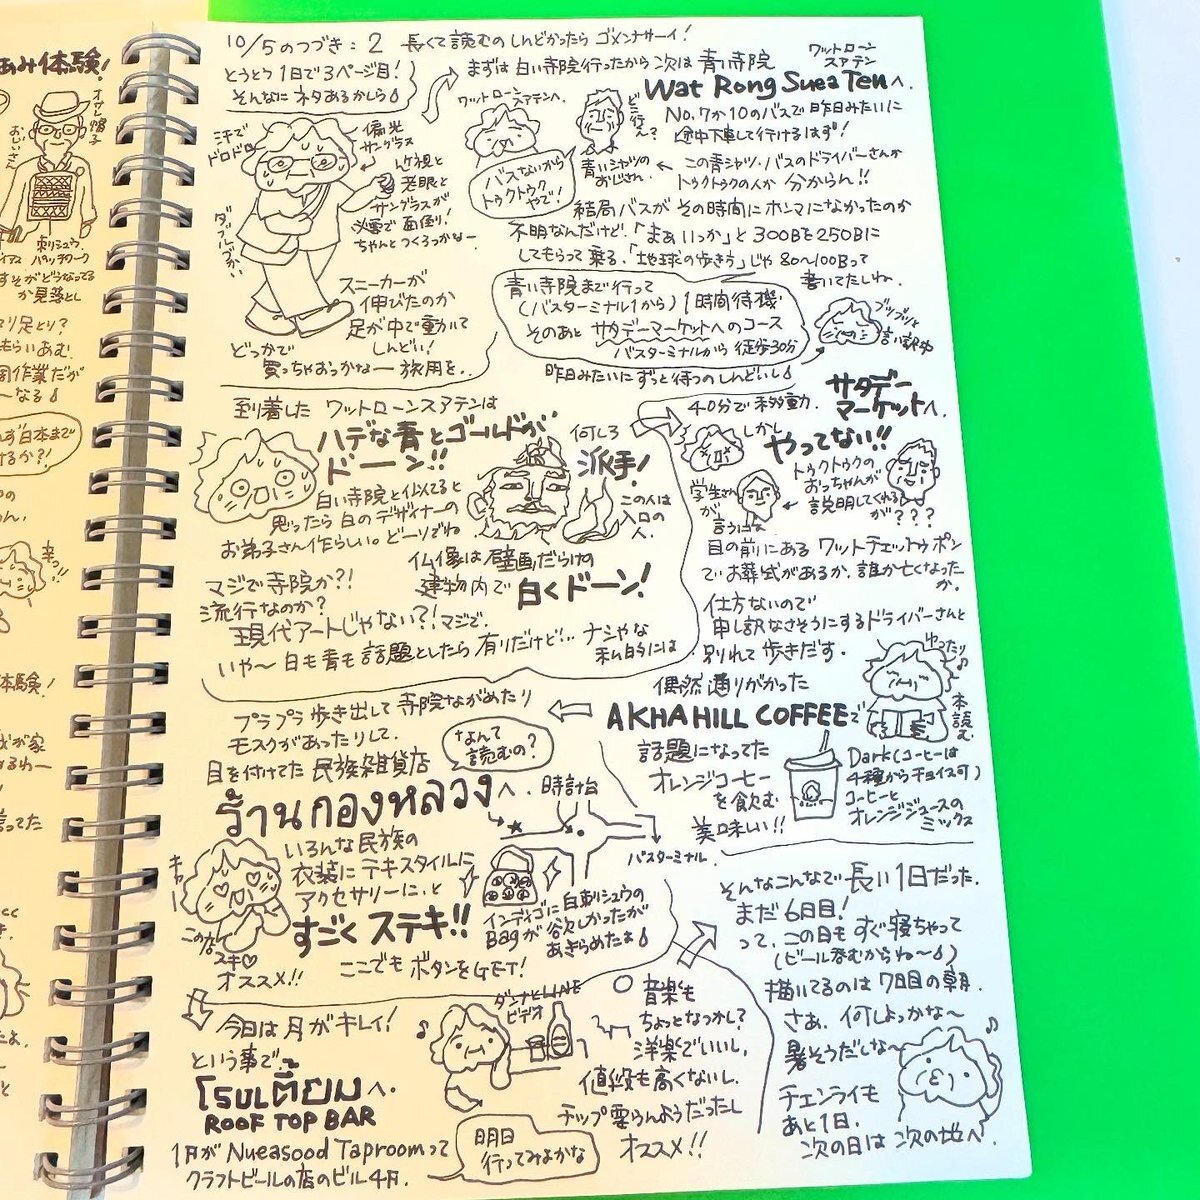 10/5のつづき:2 長くて読むのしんどかったら ゴメンナサーイ!
とうとう1日で3ページ目!
そんなにネタあるかしら
まずは白い寺院行ったから次は 青い寺院
ワットローン
スアテン
Wat Rong Suea Tenへ.
No.7か10のバスで昨日みたいに
途中下車して行けるはず!
ワットローン
スアテンへ.
どこ行くん?
バスないから
トゥクトゥク
やで!
青いシャツの
おじさん.
この青シャツ・バスのドライバーさんか
トゥクトゥクの人か 分からん!!
汗で
ドロドロ
偏光
サングラス
近視と
老眼と
サングラスが
必要で面倒!
ちゃんとつくろっかなー
スニーカーが
伸びたのか
足が中で動いて
しんどい!
どっかで
買っちゃおっかなー 旅用を..
結局バスが その時間にホンマになかったのか
不明なんだけど.「まぁいっか」と 300Bを250Bに
してもらって乗る.「地球の歩き方」じゃ 80〜100Bって
書いてたしね.
青い寺院まで行って
(バスターミナル1から) 1時間待機
そのあと サタデーマーケットへのコース
バスターミナルから 徒歩30分
ブツブツと
言い訳中
昨日みたいにずっと待つのしんどいし
到着した ワットローンスアテンは
ハデな青とゴールドが
ドーン!!
何しろ
派手!
この人は
入口の
人.
白い寺院と似てると
思ったら白のデザイナーの
お弟子さん作らしい。どーりでね
仏像は壁画だらけの
建物内で 白くドーン!
マジで寺院か?!
流行なのか?
現代アートじゃない?!マジで.
いや〜 白も青も話題としたら有りだけど!..
ナシやな
私的には
40分で移動.
しかし
サタデー
マーケットへ.
やってない!!
トゥクトゥクの
おっちゃんが
説明してくれる
が???
学生さん
が
言うには
目の前にある ワットチェットゥポン
でお葬式があるか. 誰か亡くなった
か.
仕方ないので
申し訳なさそうにするドライバーさんと
別れて歩きだす.
偶然通りがかった
AKHA HILL COFFEEで
ゆったり
本読む
話題になってた
オレンジコーヒー
を飲む
美味しい!!
Dark(コーヒーは
4種からチョイス可)
コーヒーと
オレンジジュースの
ミックス
プラプラ歩き出して寺院ながめたり
モスクがあったりして.
目を付けてた民族雑貨店
なんて
読むの?
ร้านกองหลวงへ.
時計台
バスターミナル.
いろんな民族の
衣装にテキスタイルに
アクセサリーに.と
すごくステキ!!
この店
スキ♡
オススメ!!
インディゴに白刺シュウの
Bagが欲しかったが
あきらめたよ
ここでも ボタンをGET!
今日は月がキレイ!
という事で
โรงเตี้ยมへ.
ROOF TOP BAR
1月が Nueasood Taproomって
クラフトビールの店のビル4月.
ダンナとLINE
ビデオ
明日
行ってみよかな
音楽も
ちょっとなつかし?
洋楽でいいし.
値段も高くないし.
チップ要らんようだったし
オススメ!!
そんなこんなで長い1日だった.
まだ6日目!
って、この日もすぐ寝ちゃって
(ビール呑むからね〜)
描いてるのは 7日目の朝.
さぁ.何しよっかな〜
暑そうだしな〜
チェンライも
あと1日.
次の日は 次の地へ.
あみ体験!
おじいさん
刺シュウ
パッチワーク
すそがどうなってる
か見落とし